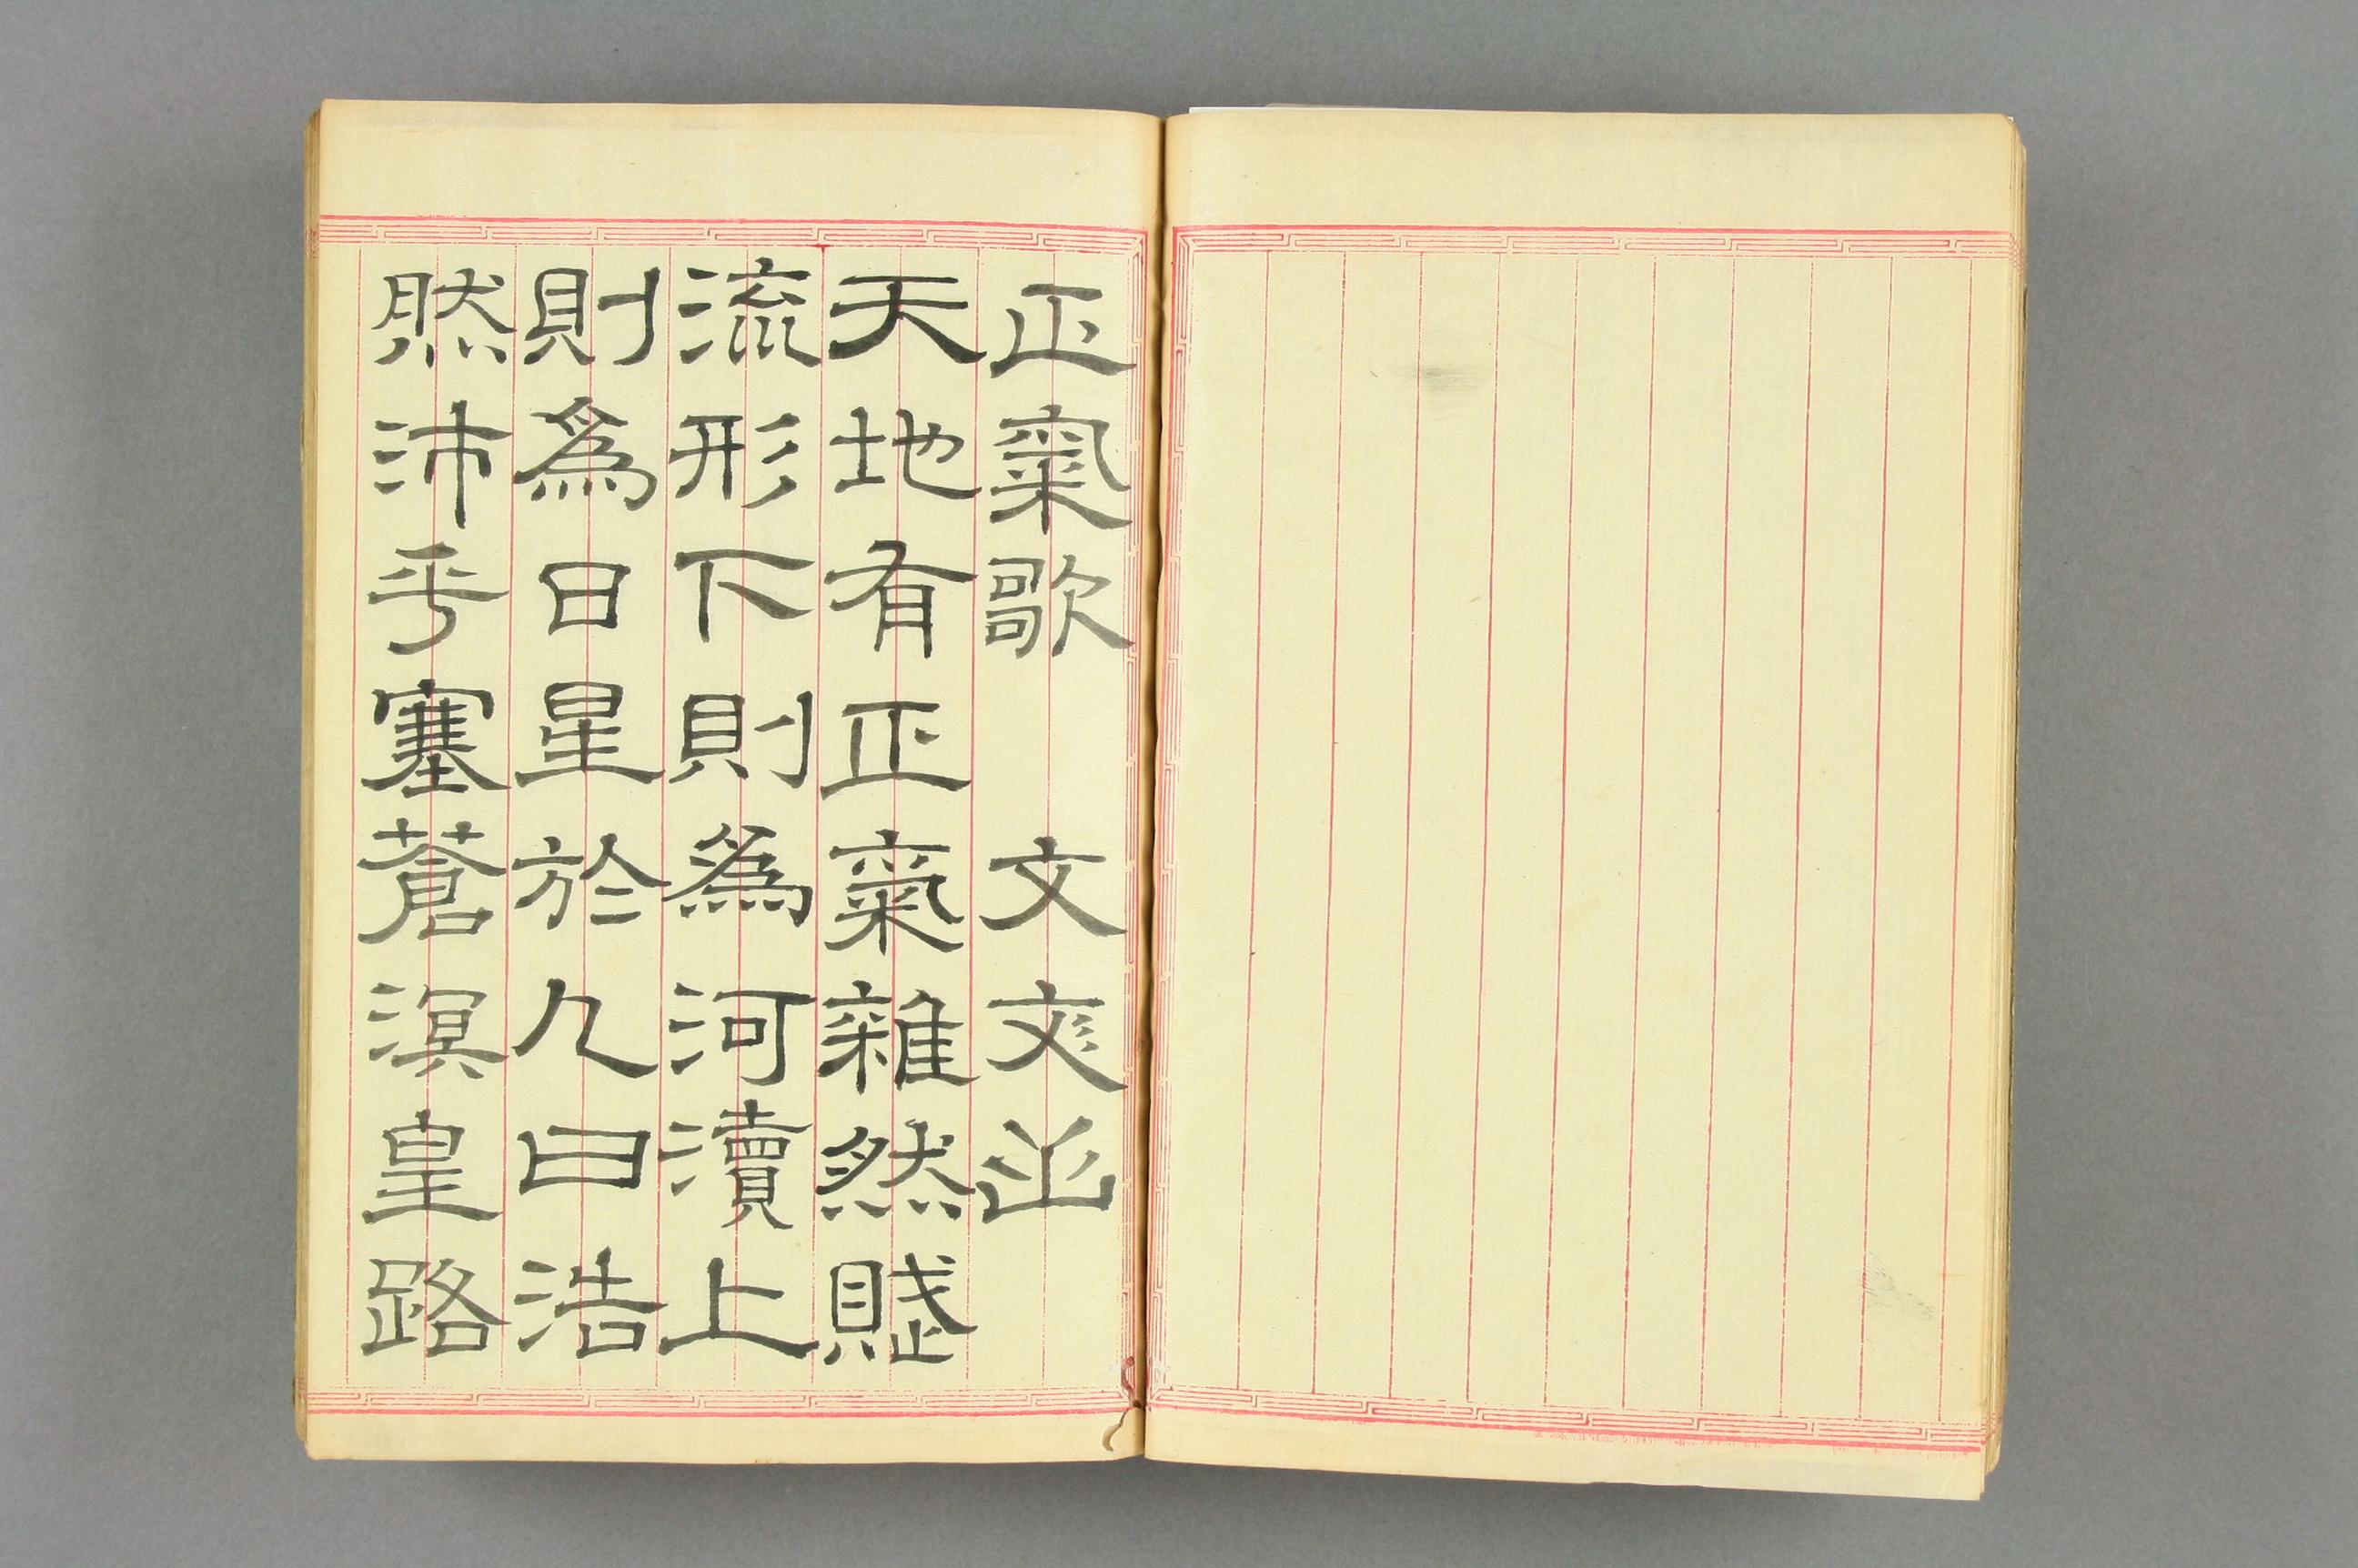 正氣歌　文彣山
天地有正氣雜然賦
流形下則爲河瀆上
則爲日星於人曰浩
然沛乎塞蒼溟皇路